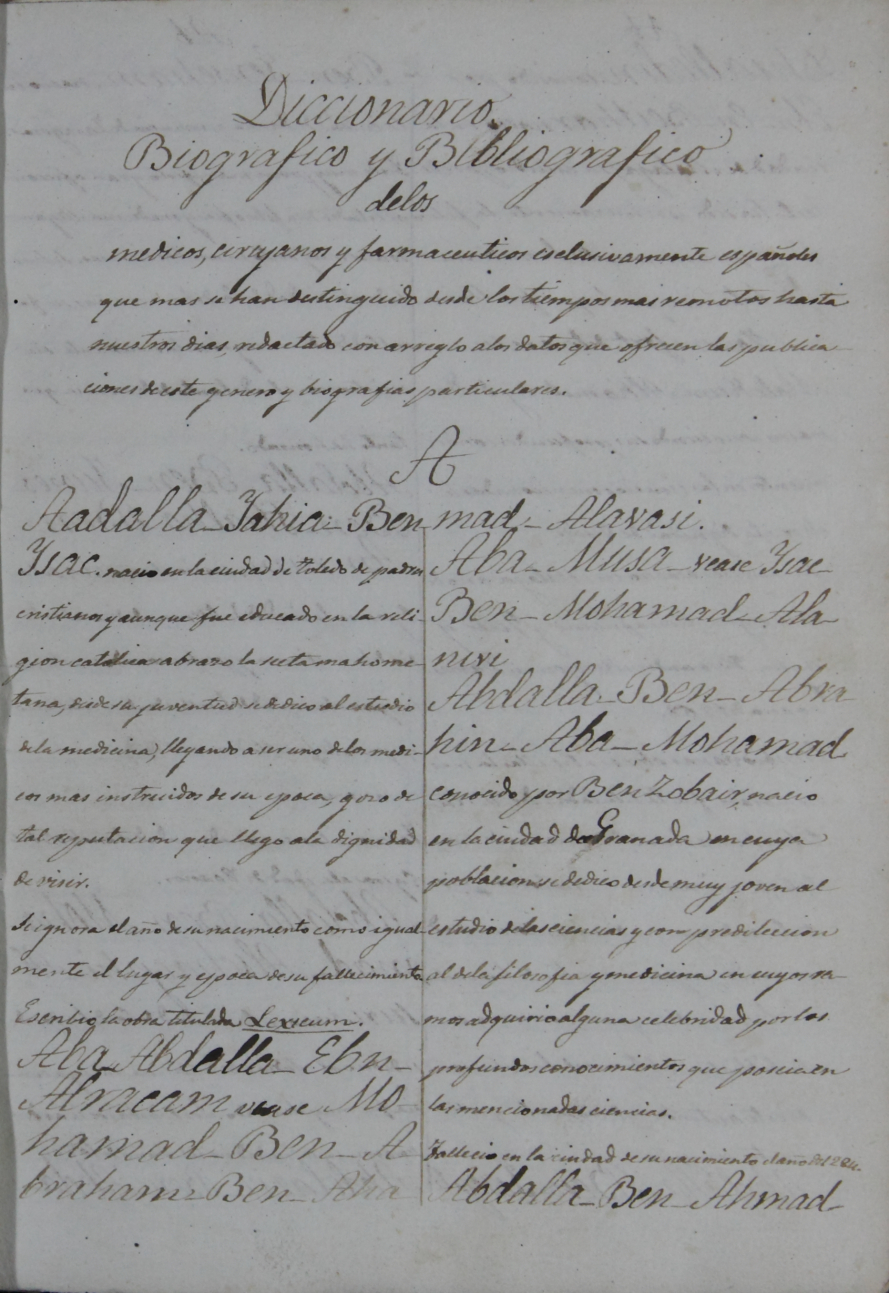 Diccionario
Biografico y Bibliografico
delos
medicos, cirujanos y farmaceuticos esclusivamente españoles
que mas se han destinguido desde los tiempos mas remotos hasta
nuestros dias, redactado con arreglo a los datos que ofrecen las publica
ciones de este genero y biografias particulares.
A
Aadalla - Yahia - Ben
Ysac. nacio en la ciudad de Toledo de padres
cristianos y aunque fue educado en la reli-
gion catolica abrazo la secta mahome-
tana, desde su juventud se dedico al estudio
de la medicina, llegando a ser uno de los medi-
cos mas instruidos de su epoca, gozo de
tal reputacion que llego ala dignidad
de visir.
Se ignora el año de su nacimiento como igual-
mente el lugar y epoca de su fallecimiento
Escribio la obra titulada Lexicum.
Aba - Abdalla - Ebn -
Alracam vease Mo
hamad - Ben - A
braham - Ben - Aha
mad - Alavasi.
Aba - Musa - vease Ysac -
Ben - Mohamad - Ala -
niri
Abdalla - Ben - Abra
hin - Aba - Mohamad
conocido por Ben Zobair, nacio
en la ciudad de Granada en cuya
poblacion se dedico desde muy joven al
estudio de las ciencias y con predileccion
al de la filosofia y medicina en cuyos ra-
mos adquirio alguna celebridad por los
profundos conocimientos que poseia en
las mencionadas ciencias.
Fallecio en la ciudad de su nacimiento el año del
Abdalla - Ben - Ahmad -